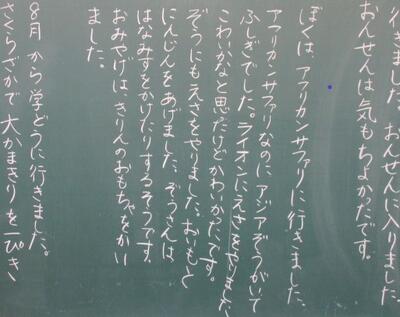 行きました。おんせんに入りました。
おんせんは気もちよかったです。
ぼくは、アフリカンサファリに行きました。
アフリカンサファリなのにアジアぞうがいて
ふしぎでした。ライオンにえさをやりました。
こわいかなと思ったけどかわいかったです。
ぞうにもえさをやりました。おいもと
にんじんをあげました。ぞうさんは
はなみずをかけたりするそうです。
おみやげは、きりんのおもちゃをかい
ました。
8月から学どうに行きました。
さくらざかで大かまきりを一ぴき